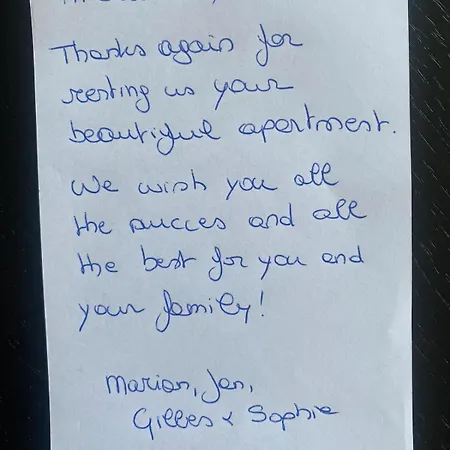 Thanks again for
renting us your
beautiful apartment.
We wish you all
the succes and all
the best for you and
your family!
Marian, Jan,
Gilles & Sophie